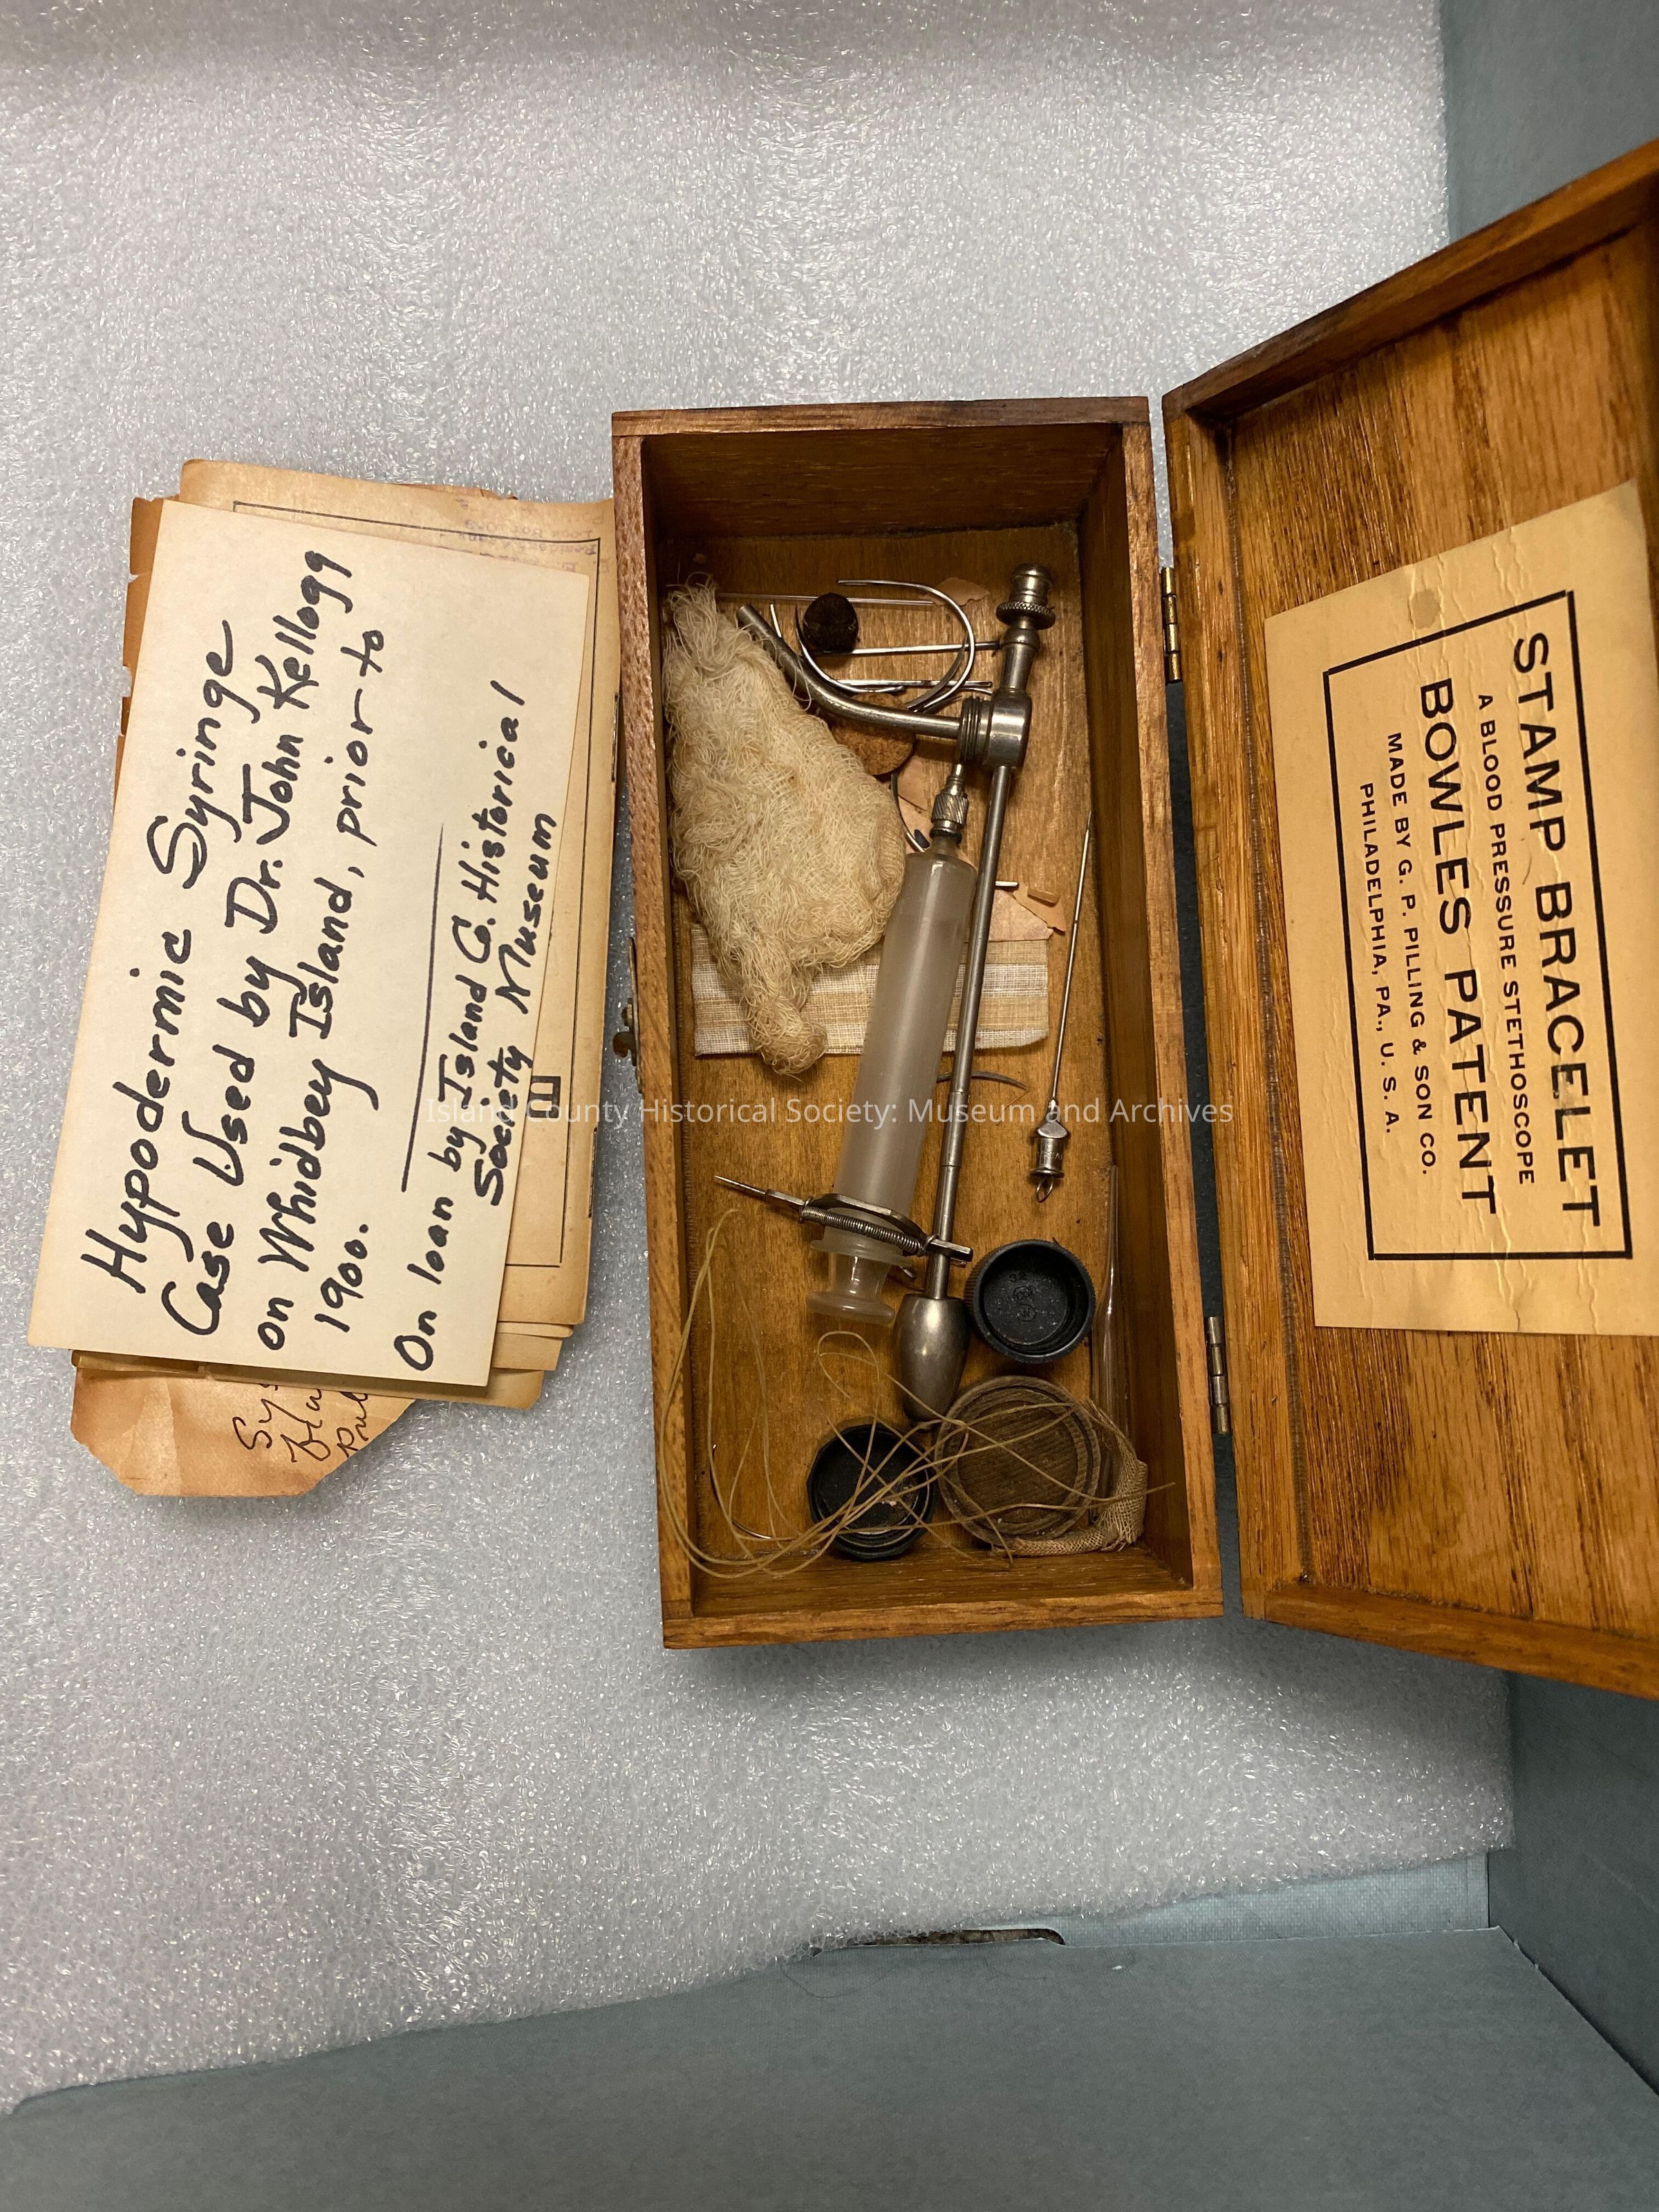 Hypodermic Syringe
Case Used by Dr. John Kellogg
on Whidbey Island, prior to
1900.
On loan by Island Co. Historical
Society Museum
STAMP BRACELET
A BLOOD PRESSURE STETHOSCOPE
BOWLES PATENT
MADE BY G. P. PILLING & SON CO.
PHILADELPHIA, PA., U. S. A.
Island County Historical Society: Museum and Archives